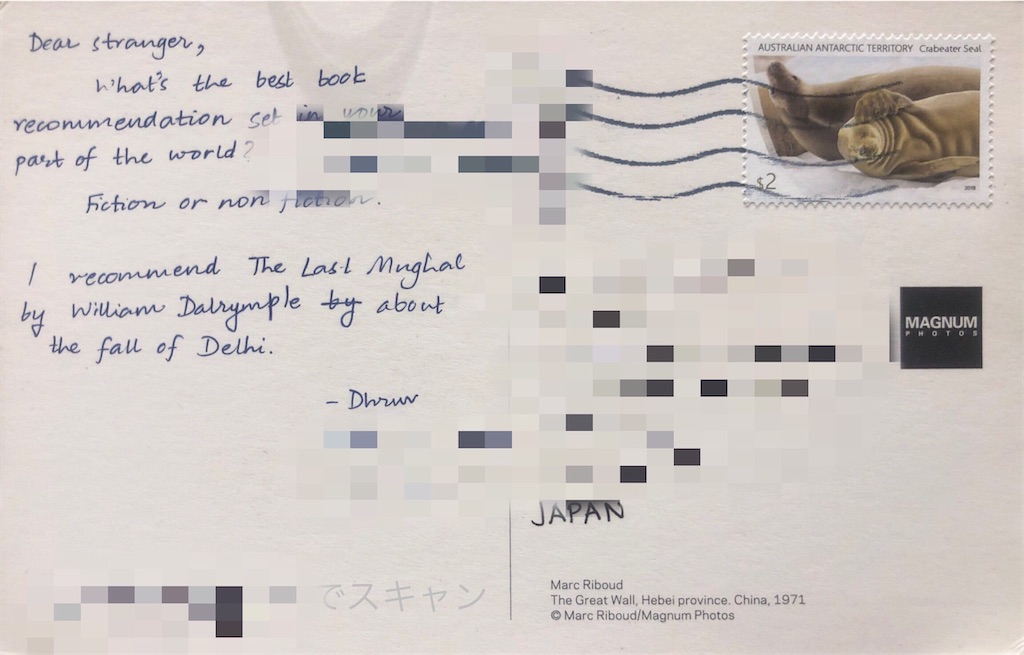 Dear stranger,
What's the best book
recommendation set in your
part of the world?
Fiction or non fiction.
I recommend The Last Mughal
by William Dalrymple by about
the fall of Delhi.
- Dhruv
AUSTRALIAN ANTARCTIC TERRITORY Crabeater Seal
$2
2018
MAGNUM
PHOTOS
JAPAN
Marc Riboud
The Great Wall, Hebei province. China, 1971
© Marc Riboud/Magnum Photos
でスキャン